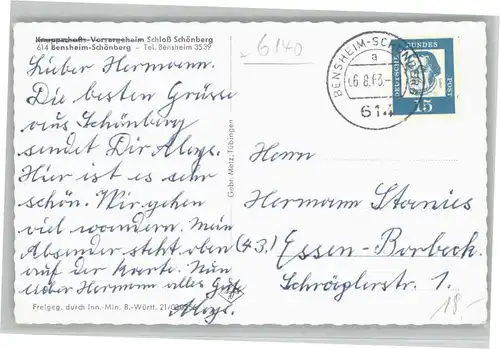 Knappschafts-Versorgeheim Schloß Schönberg
614 Bensheim-Schönberg - Tel. Bensheim 3539
Lieber Hermann.
Die besten Grüsse
aus Schönberg
sendet Dir Aloys.
Hier ist es sehr
schön. Wir gehen
viel wandern. Mein
Absender steht oben
auf der Karte. Nun
lieber Hermann alles Gute
Aloys.
Freigeg. durch Inn.-Min. B.-Württ. 21/
Gebr. Metz, Tübingen
6140
BENSHEIM-SCHÖNBERG
a
-6.8.63.-
614
DEUTSCHE BUNDESPOST
15
Herrn
Hermann Stanies
(43) Essen-Borbeck
Schräglerstr. 1.
18.-